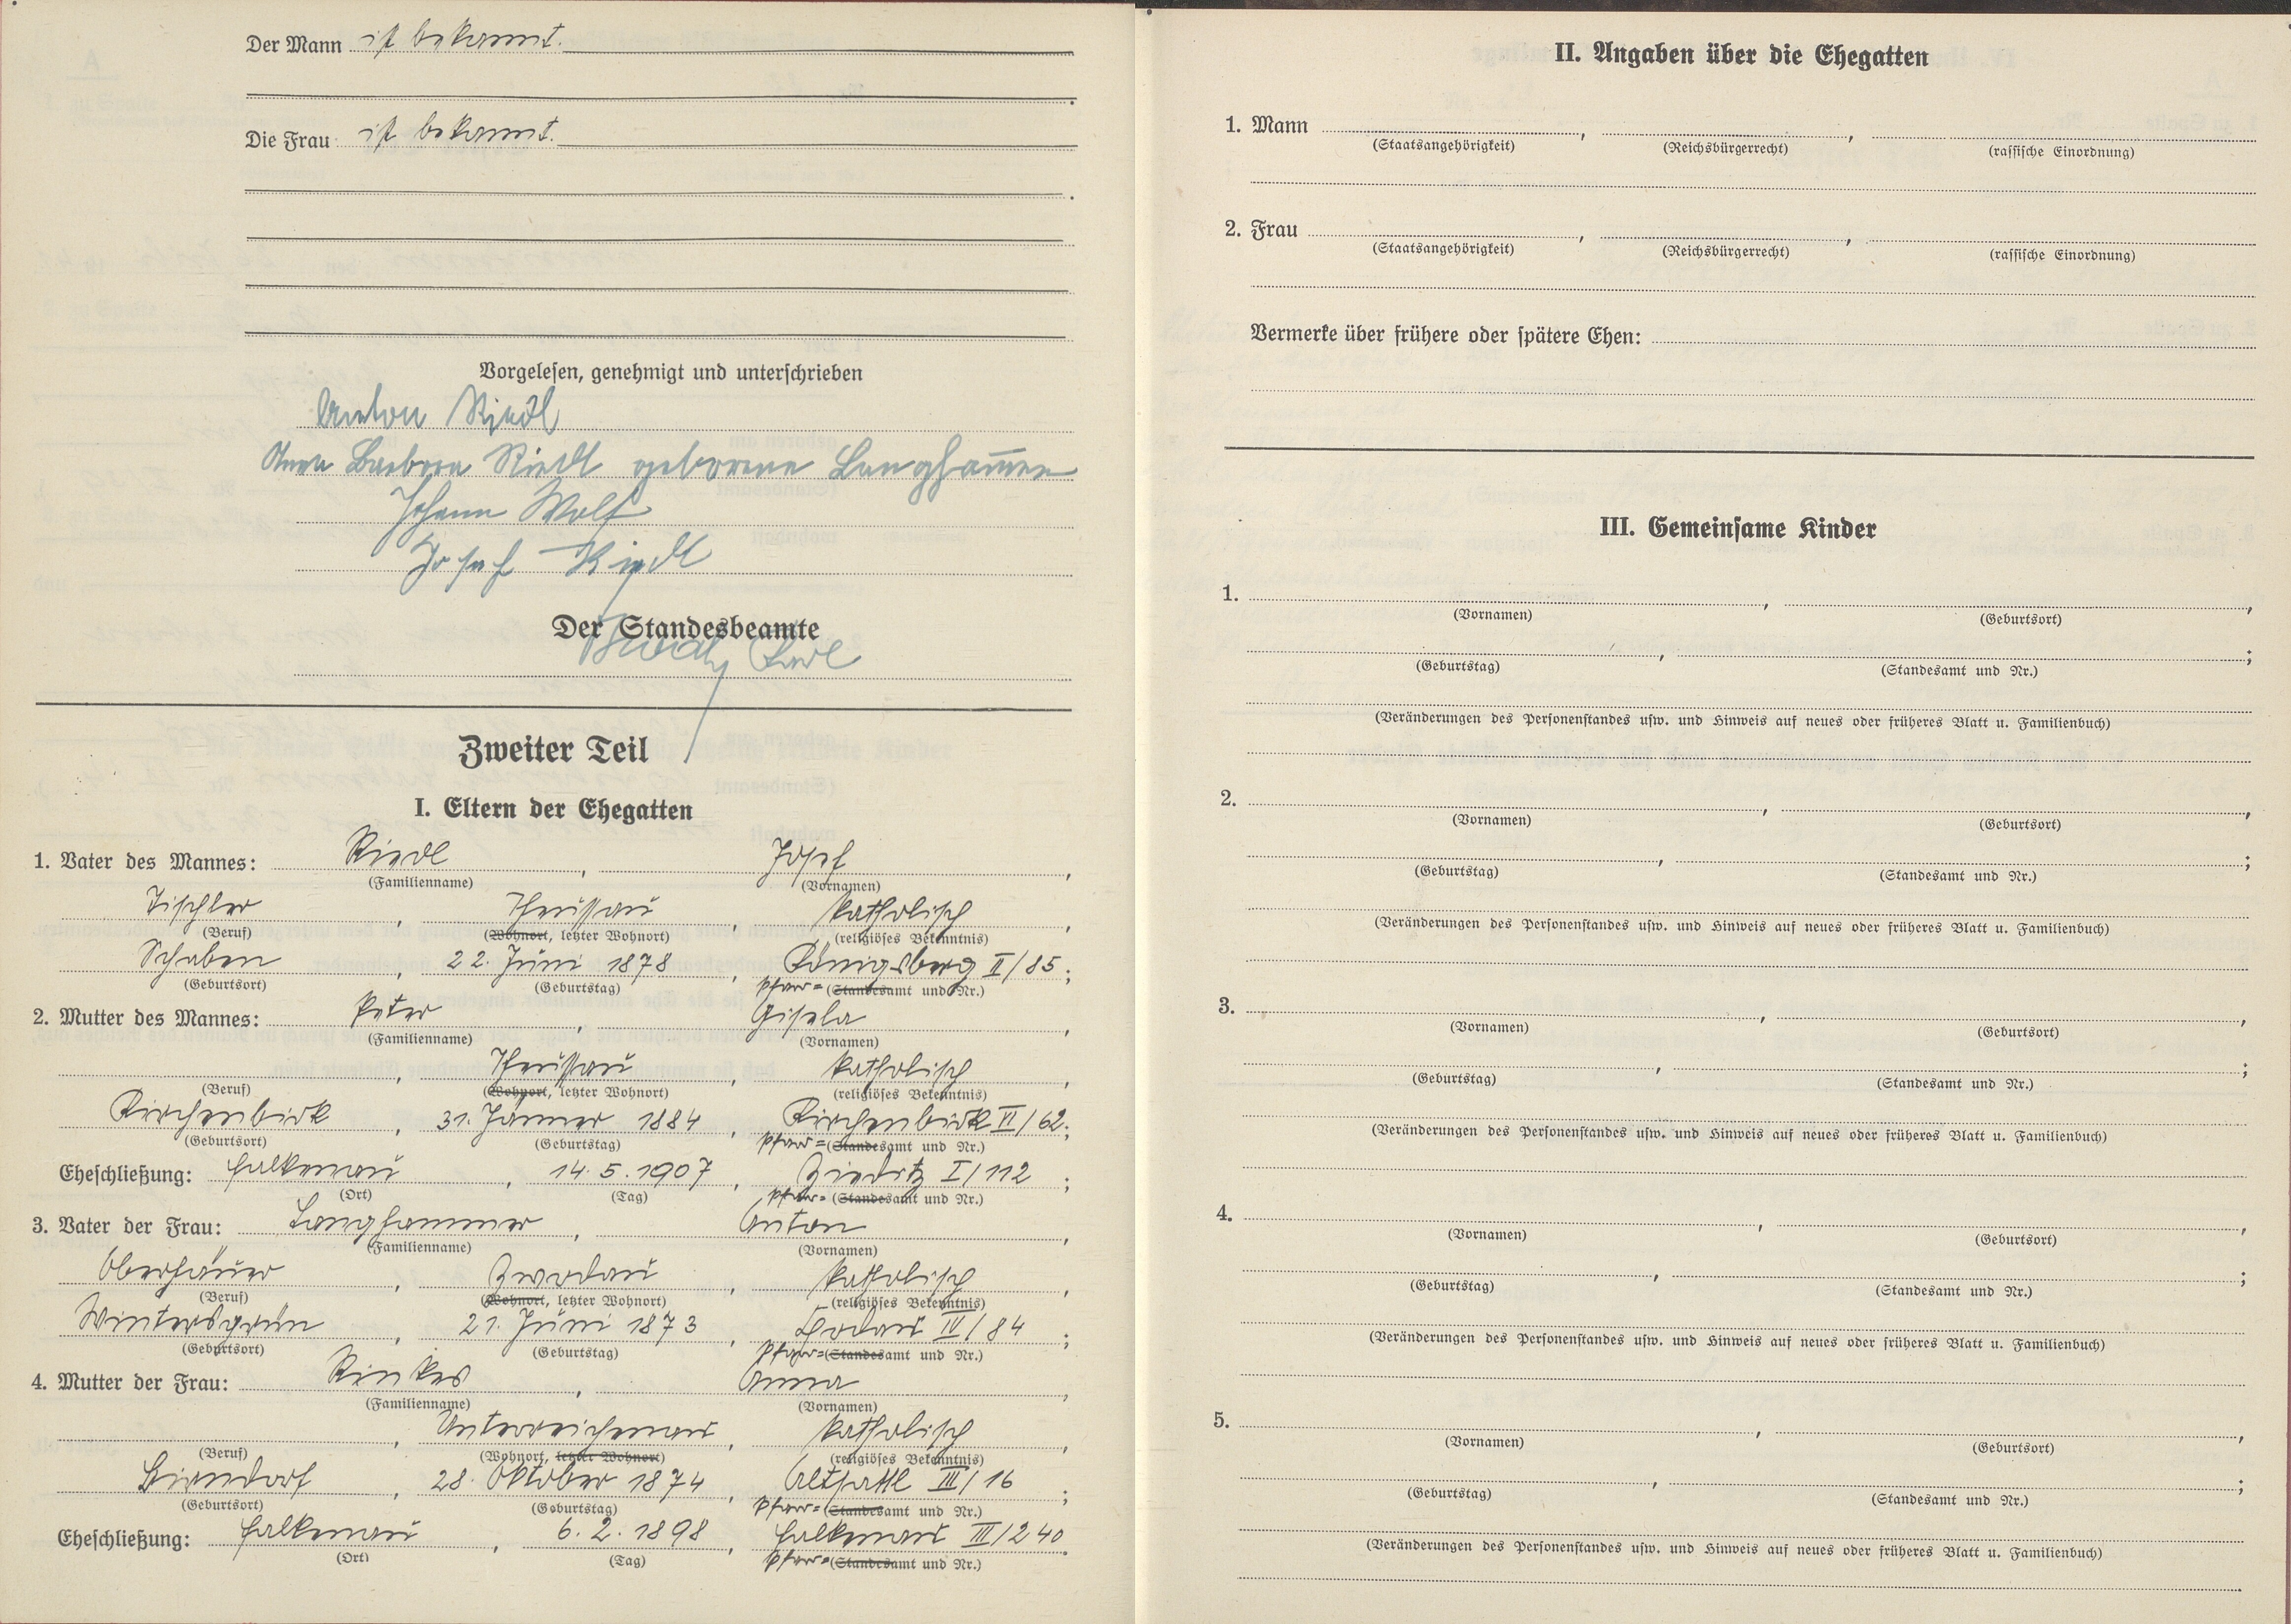 Der Mann ist bekannt.
Die Frau ist bekannt.
Vorgelesen, genehmigt und unterschrieben
Anton Riedl
Anna Barbara Riedl geborene Langham̅er
Johann Wolf
Josef Riedl
Der Standesbeamte
Zweiter Teil
I. Eltern der Ehegatten
1. Vater des Mannes: Riedl, Josef,
(Familienname) (Vornamen)
Tischler, Theussau, katholisch,
(Beruf) (Wohnort, letzter Wohnort) (religiöses Bekenntnis)
Schaben, 22. Juni 1878, Königsberg II/85;
(Geburtsort) (Geburtstag) Pfarr= (Standesamt und Nr.)
2. Mutter des Mannes: Peter, Gisela,
(Familienname) (Vornamen)
, Theussau, katholisch,
(Beruf) (Wohnort, letzter Wohnort) (religiöses Bekenntnis)
Kirchenbirk, 31. Jänner 1884, Kirchenbirk VI/62;
(Geburtsort) (Geburtstag) Pfarr= (Standesamt und Nr.)
Eheschließung: Falkenau, 14.5.1907, Zieditz I/112;
(Ort) (Tag) Pfarr= (Standesamt und Nr.)
3. Vater der Frau: Langhammer, Anton,
(Familienname) (Vornamen)
Oberhäuer, Zwodau, katholisch,
(Beruf) (Wohnort, letzter Wohnort) (religiöses Bekenntnis)
Wintersgrün, 21. Juni 1873, IV/84;
(Geburtsort) (Geburtstag) Pfarr= (Standesamt und Nr.)
4. Mutter der Frau: Rinkes, Anna,
(Familienname) (Vornamen)
, Unterreichenau, katholisch,
(Beruf) (Wohnort, letzter Wohnort) (religiöses Bekenntnis)
Birndorf, 28. Oktober 1874, Altsattl III/16;
(Geburtsort) (Geburtstag) Pfarr= (Standesamt und Nr.)
Eheschließung: Falkenau, 6.2.1898, Falkenau III/240.
(Ort) (Tag) Pfarr= (Standesamt und Nr.)
II. Angaben über die Ehegatten
1. Mann , ,
(Staatsangehörigkeit) (Reichsbürgerrecht) (rassische Einordnung)
2. Frau , ,
(Staatsangehörigkeit) (Reichsbürgerrecht) (rassische Einordnung)
Vermerke über frühere oder spätere Ehen:
III. Gemeinsame Kinder
1. , ,
(Vornamen) (Geburtsort)
, ;
(Geburtstag) (Standesamt und Nr.)
(Veränderungen des Personenstandes usw. und Hinweis auf neues oder früheres Blatt u. Familienbuch)
2. , ,
(Vornamen) (Geburtsort)
, ;
(Geburtstag) (Standesamt und Nr.)
(Veränderungen des Personenstandes usw. und Hinweis auf neues oder früheres Blatt u. Familienbuch)
3. , ,
(Vornamen) (Geburtsort)
, ;
(Geburtstag) (Standesamt und Nr.)
(Veränderungen des Personenstandes usw. und Hinweis auf neues oder früheres Blatt u. Familienbuch)
4. , ,
(Vornamen) (Geburtsort)
, ;
(Geburtstag) (Standesamt und Nr.)
(Veränderungen des Personenstandes usw. und Hinweis auf neues oder früheres Blatt u. Familienbuch)
5. , ,
(Vornamen) (Geburtsort)
, ;
(Geburtstag) (Standesamt und Nr.)
(Veränderungen des Personenstandes usw. und Hinweis auf neues oder früheres Blatt u. Familienbuch)